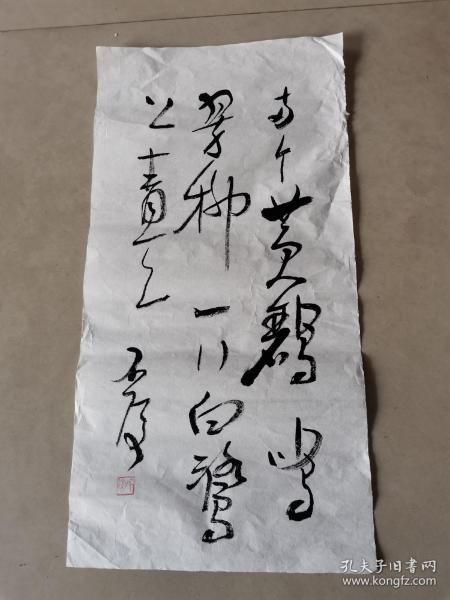 两个黄鹂鸣
翠柳一行白鹭
上青天
孔夫子旧书网
www.kongfz.com